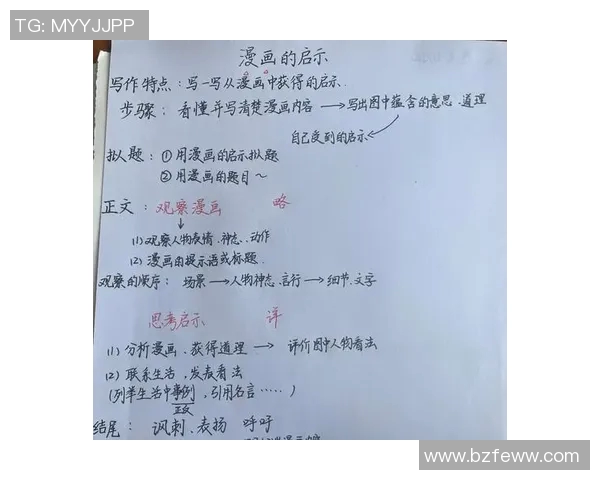 TG: MYYJJPP
漫画的启示
写作特点：写一写从漫画中获得的启示.
步骤：看懂并写清楚漫画内容→写出图中蕴含的意思.道理
自己受到的启示
拟人题：①用漫画的启示拟题
②用漫画的题目～
正文：观察漫画 略
(1)观察人物表情.神态.动作
(2)漫画由提示语或标题.
观察的顺序：场景→人物神态.言行→细节.文字
思考启示 详
(1)分析漫画.获得道理→评价图中人物看法
(2)联系生活，发表看法
(列举生活中事例，引用名言……)
正反
结尾：讽刺.表扬 呼吁
www.bzfeww.com